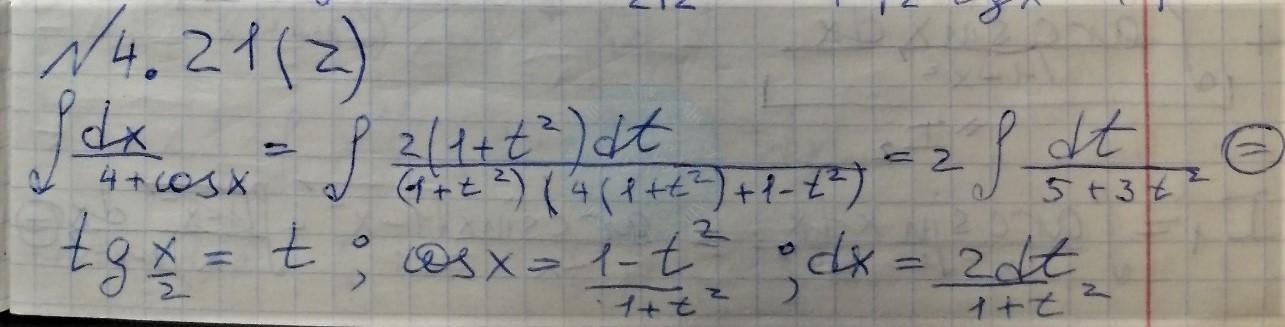 №4.21(2)
∫ dx/(4+cosx) = ∫ 2(1+t²)dt/((1+t²)(4(1+t²)+1-t²)) = 2 ∫ dt/(5+3t²) ⊜
tg x/2 = t ; cosx = (1-t²)/(1+t²) ; dx = 2dt/(1+t²)